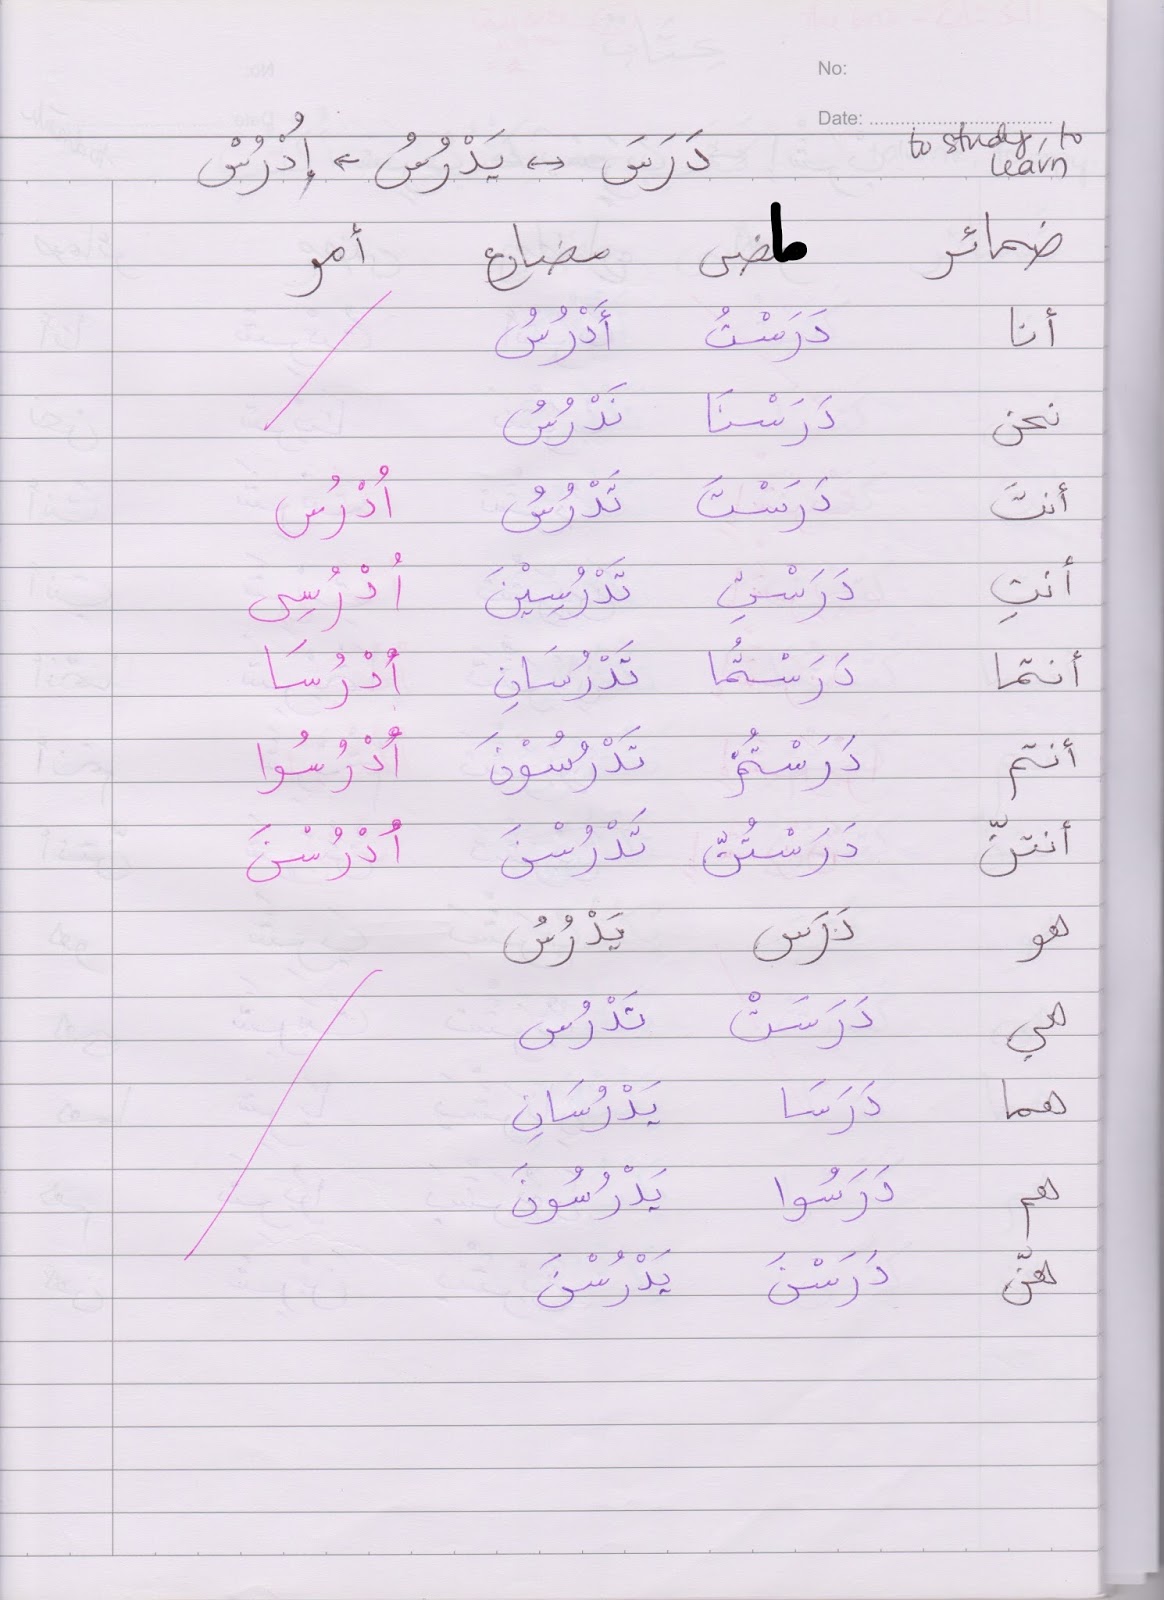 No:
Date:
to study, to learn
دَرَسَ ↔ يَدْرُسُ ← اُدْرُسْ
ضمائر ماضى مضارع أمر
أنا دَرَسْتُ أَدْرُسُ
نحن دَرَسْنَا نَدْرُسُ
أنتَ دَرَسْتَ تَدْرُسُ اُدْرُس
أنتِ دَرَسْتِ تَدْرُسِيْنَ اُدْرُسِى
أنتما دَرَسْتُمَا تَدْرُسَانِ اُدْرُسَا
أنتم دَرَسْتُمْ تَدْرُسُوْنَ اُدْرُسُوا
أنتنّ دَرَسْتُنّ تَدْرُسْنَ اُدْرُسْنَ
هو دَرَس يَدْرُسُ
هي دَرَسَتْ تَدْرُس
هما دَرَسَا يَدْرُسَانِ
هم دَرَسُوا يَدْرُسُونَ
هنّ دَرَسْنَ يَدْرُسْنَ